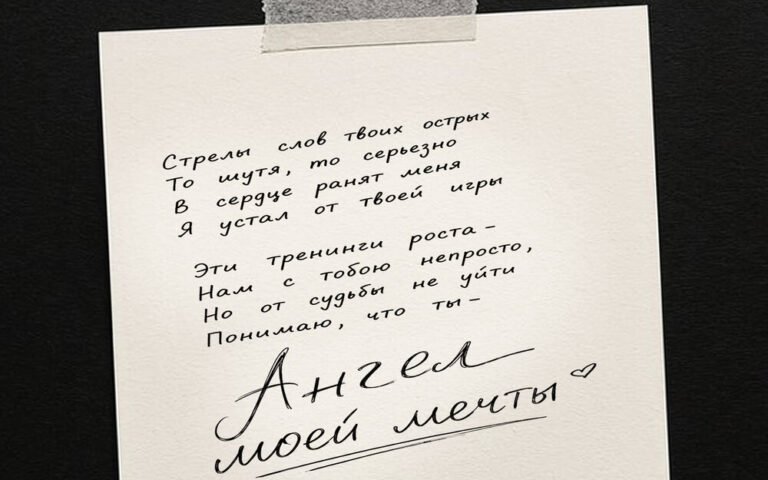 Стрелы слов твоих острых
То шутя, то серьезно
В сердце ранят меня
Я устал от твоей игры
Эти тренинги роста –
Нам с тобою непросто,
Но от судьбы не уйти
Понимаю, что ты –
Ангел
моей мечты